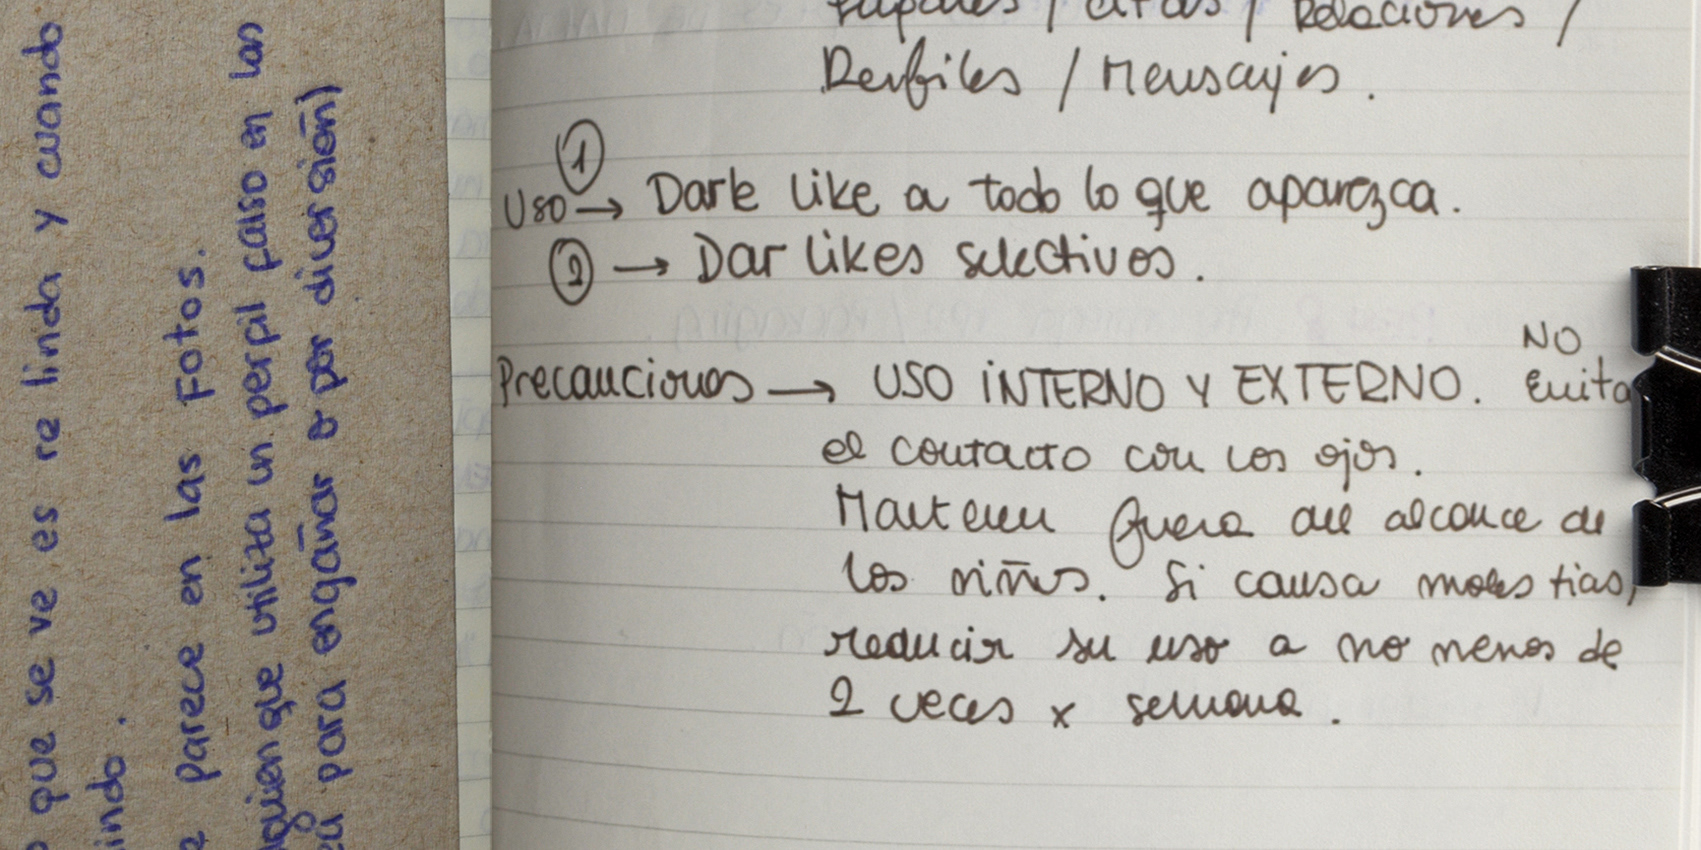 que se ve es re linda y cuando
parece en las Fotos.
que utiliza un perfil falso en las
para engañar o por diversión)
/ citas / Relaciones /
Perfiles / Mensajes.
1
USO → Darle like a todo lo que aparezca.
2 → Dar likes selectivos.
NO
Precauciones → USO INTERNO Y EXTERNO. Evita
el contacto con los ojos.
Mantener fuera del alcance de
los niños. Si causa molestias,
reducir su uso a no menos de
2 veces x semana.